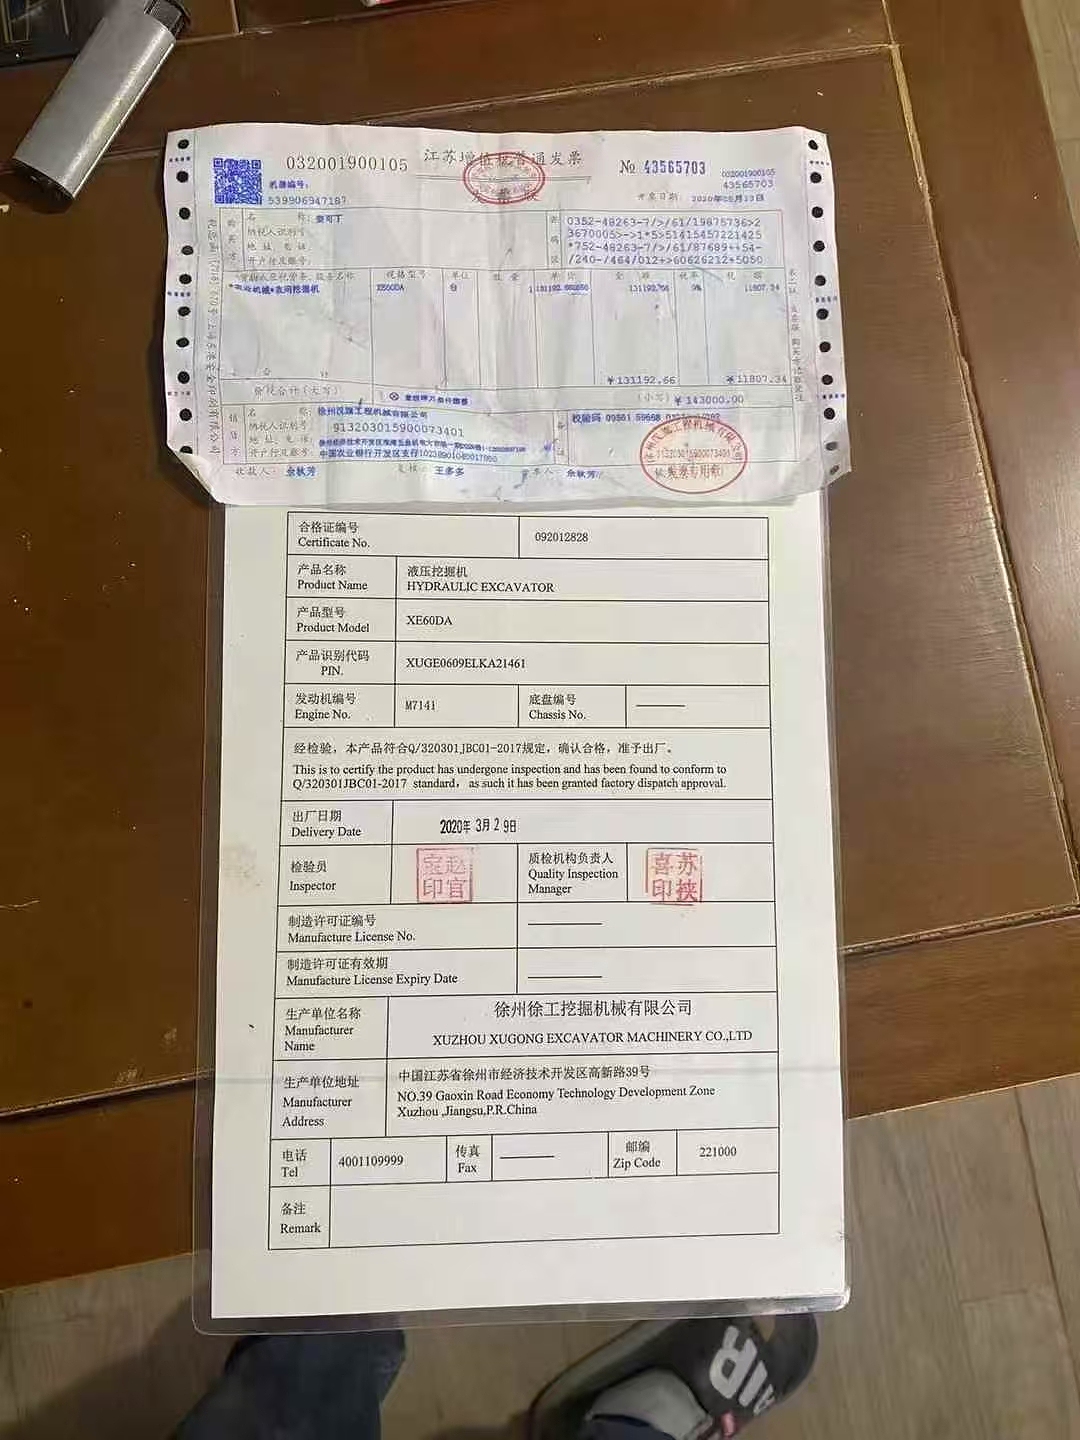 032001900105
江苏增值税普通发票
№ 43565703
032001900105
43565703
机器编号:
539906947187
开票日期: 2020年05月13日
名 称:
纳税人识别号:
地 址、电 话:
开户行及账号:
0352-48263-7/>/61/19875736>2
3670005>->1*5>51415457221425
*752-48263-7/>/61/87689++54-
/240-/464/012+>60626212+5050
货物或应税劳务、服务名称 规格型号 单位 数 量 单 价 金 额 税率 税 额
XE60DA 台 1 131192.66 9% 11807.34
合 计
¥131192.66 ¥11807.34
价税合计(大写)
(小写) ¥143000.00
名 称:
纳税人识别号: 913203015900073401
地 址、电 话:
开户行及账号:
校验码
收款人: 余秋芳 复核: 王多多 开票人: 余秋芳
913203015900073401
发票专用章
合格证编号
Certificate No.
092012828
产品名称
Product Name
液压挖掘机
HYDRAULIC EXCAVATOR
产品型号
Product Model
XE60DA
产品识别代码
PIN.
XUGE0609ELKA21461
发动机编号
Engine No.
M7141
底盘编号
Chassis No.
经检验，本产品符合Q/320301JBC01-2017规定，确认合格，准予出厂。
This is to certify the product has undergone inspection and has been found to conform to
Q/320301JBC01-2017 standard，as such it has been granted factory dispatch approval.
出厂日期
Delivery Date
2020年 3月 2 9日
检验员
Inspector
质检机构负责人
Quality Inspection
Manager
制造许可证编号
Manufacture License No.
制造许可证有效期
Manufacture License Expiry Date
生产单位名称
Manufacturer
Name
徐州徐工挖掘机械有限公司
XUZHOU XUGONG EXCAVATOR MACHINERY CO.,LTD
生产单位地址
Manufacturer
Address
中国江苏省徐州市经济技术开发区高新路39号
NO.39 Gaoxin Road Economy Technology Development Zone
Xuzhou ,Jiangsu,P.R.China
电话
Tel
4001109999
传真
Fax
邮编
Zip Code
221000
备注
Remark
AIR